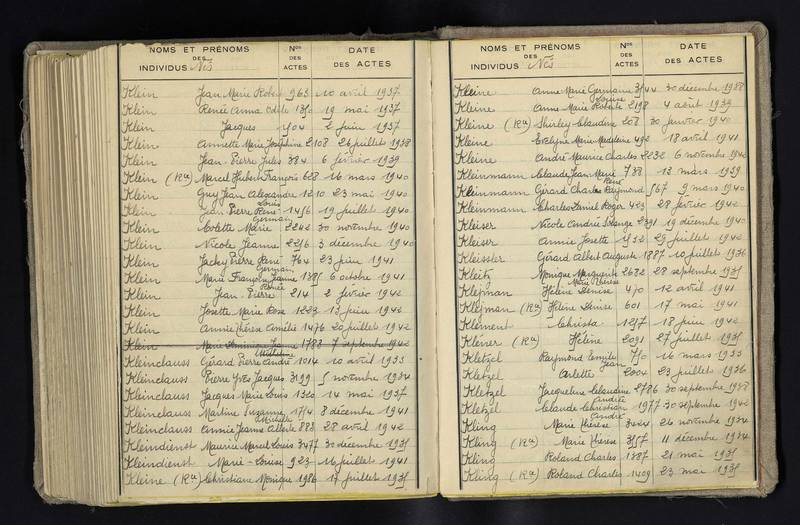 NOMS ET PRÉNOMS
DES
INDIVIDUS Nés
Nos
DES
ACTES
DATE
DES ACTES
Klein Jean Marie Robert 963 10 avril 1937
Klein Renée Anna Odile 19 mai 1937
Klein Jacques 2 juin 1937
Klein Annette Marie Joséphine 2108 26 juillet 1938
Klein Jean Pierre Jules 384 6 février 1939
Klein (Ra) Marcel Hubert François 628 16 mars 1940
Klein Guy Jean Alexandre 1210 23 mai 1940
Louis
Klein Jean Pierre René 1456 19 juillet 1940
Germain
Klein Colette Marie 2242 30 novembre 1940
Klein Nicole Jeanne 2256 3 décembre 1940
Klein Jacky Pierre René 764 23 juin 1941
Germain
Klein Marie Françoise Jeanne 6 octobre 1941
Renée
Klein Jean Pierre 214 2 février 1942
Klein Josette Marie Rose 1223 13 juin 1942
Klein Annie Thérèse Amélie 1476 20 juillet 1942
Klein Marie Dominique Jeanne 1783 7 septembre 1942
Kleinclauss Gérard Pierre André 1014 10 avril 1933
Kleinclauss Pierre Yves Jacques 3199 5 novembre 1934
Kleinclauss Jacques Marie Louis 1320 14 mai 1937
Kleinclauss Martine Suzanne 1754 8 décembre 1941
Michèle
Kleinclauss Annie Jeanne Alberte 883 28 avril 1942
Kleindienst Maurice Marcel Louis 3477 30 décembre 1935
Kleindienst Marie-Louise 923 16 juillet 1941
Kleine (Ra) Christiane Monique 1986 17 juillet 1935
NOMS ET PRÉNOMS
DES
INDIVIDUS Nés
Nos
DES
ACTES
DATE
DES ACTES
Kleine Anne Marie Germaine 3544 30 décembre 1938
Louise
Kleine Anne Marie Roberte 2198 4 août 1939
Kleine (Ra) Shirley Claudine 208 30 janvier 1940
Kleine Evelyne Marie Madeleine 492 18 avril 1941
Kleine André Maurice Charles 2232 6 novembre 1942
Kleinmann Claude Jean Marie 738 13 mars 1939
René
Kleinmann Gérard Charles Raymond 567 9 mars 1940
Kleinmann Charles Daniel Roger 423 28 février 1942
Kleiser Nicole Andrée Solange 2391 19 décembre 1940
Kleiser Annie Josette 1532 29 juillet 1942
Kleissler Gérard Albert Auguste 1887 10 juillet 1936
Kleitz Monique Marguerite 2682 28 septembre 1935
Marie Thérèse
Klejman Hélène Denise 470 12 avril 1941
Klejman (Ra) Hélène Denise 601 17 mai 1941
Klément Christa 1257 18 juin 1942
Klener (Ra) Hélène 2091 27 juillet 1935
Kletzel Raymond Emile 750 16 mars 1933
Jean
Kletzel Arlette 2004 23 juillet 1936
Kletzel Jacqueline Claudine 2786 30 septembre 1938
Andrée
Kletzel Claude Christian 1977 30 septembre 1942
Andrée
Kling Marie Thérèse 3424 26 novembre 1934
Kling (Ra) Marie Thérèse 3557 11 décembre 1934
Kling Roland Charles 1387 21 mai 1935
Kling (Ra) Roland Charles 1409 23 mai 1935